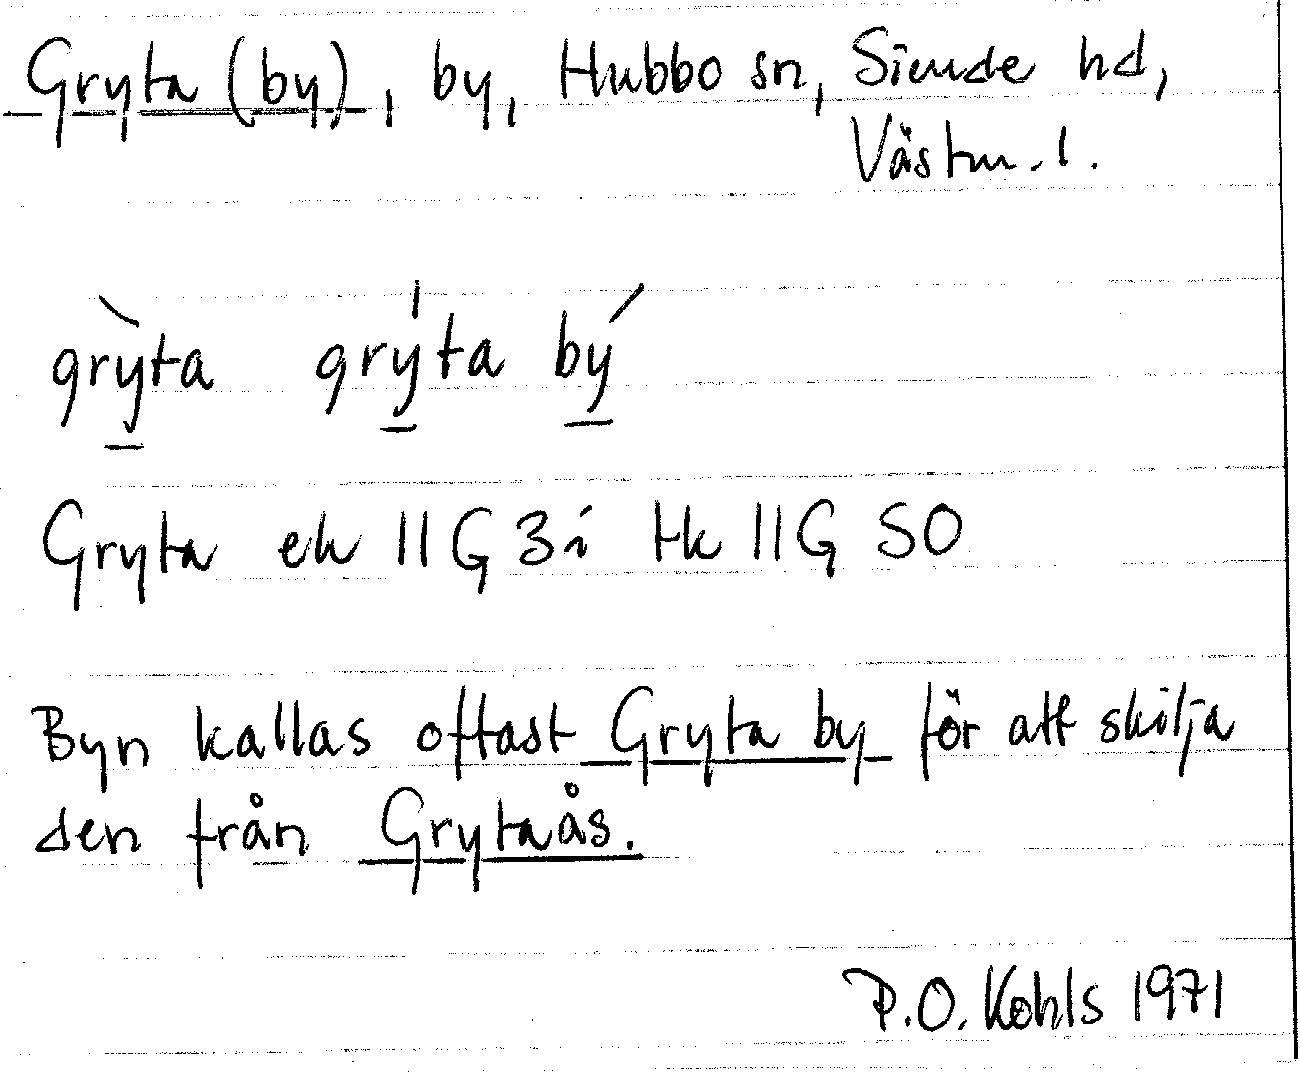 Gryta (by), by, Hubbo sn, Siende hd,
Västm. l.
grỳta grýta bý
Gryta ek 11G 3i tk 11G SO
Byn kallas oftast Gryta by för att skilja
den från Grytaås.
P.O. Kohls 1971